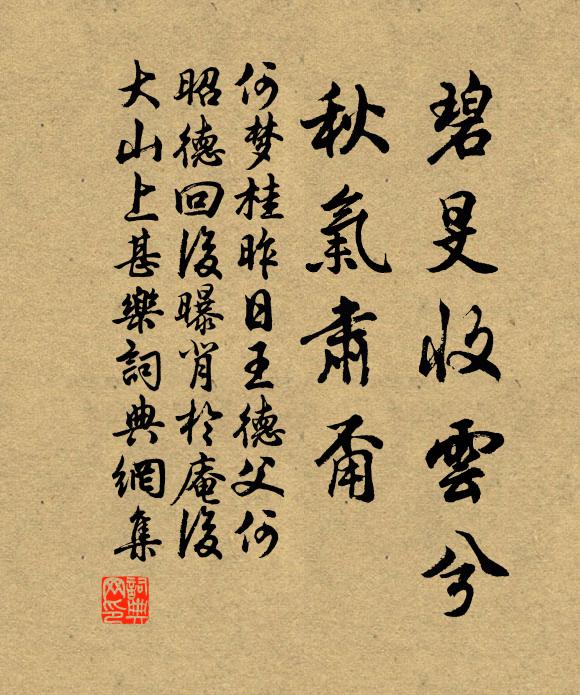 碧旻收雲兮
秋氣肅甭
何梦桂昨日王德父何
昭德回後曝肖於庵後
大山上甚樂詞典網集
詞典
网印